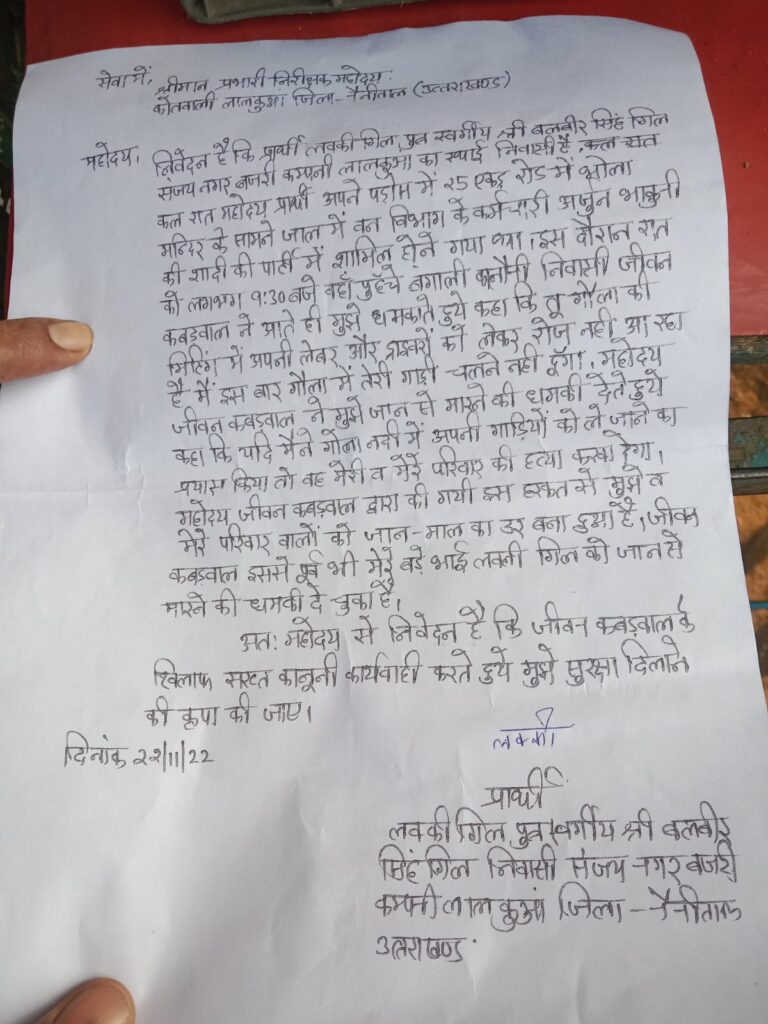 सेवा में,
श्रीमान प्रभारी निरीक्षक महोदय
कोतवाली लालकुआं जिला- नैनीताल (उत्तराखण्ड)
महोदय,
निवेदन है कि प्रार्थी लक्की गिल पुत्र स्वर्गीय श्री बलबीर सिंह गिल
संजय नगर बजरी कम्पनी लालकुआं का स्थाई निवासी है, कल रात
कल रात महोदय प्रार्थी अपने पड़ोस में 25 एकड़ रोड में भोला
मन्दिर के सामने जाल में वन विभाग के कर्मचारी अर्जुन भाकुनी
की शादी की पार्टी में शामिल होने गया था। इस दौरान रात
को लगभग 9:30 बजे वहाँ पहुँचे बंगाली कालौनी निवासी जीवन
कबड़वाल ने आते ही मुझे धमकाते हुये कहा कि तू गौला की
मिटिंग में अपनी लेबर और ड्राइवरों को लेकर रोज नहीं आ रहा
है मैं इस बार गौला में तेरी गाड़ी चलने नहीं दूँगा, महोदय
जीवन कबड़वाल ने मुझे जान से मारने की धमकी देते हुये
कहा कि यदि मैने गौला नदी में अपनी गाड़ियों को ले जाने का
प्रयास किया तो वह मेरी व मेरे परिवार की हत्या करवा देगा,
महोदय जीवन कबड़वाल द्वारा की गयी इस हरकत से मुझे व
मेरे परिवार वालों को जान-माल का डर बना हुआ है, जीवन
कबड़वाल इससे पूर्व भी मेरे बड़े भाई लवली गिल को जान से
मारने की धमकी दे चुका है।
अतः महोदय से निवेदन है कि जीवन कबड़वाल के
खिलाफ सख्त कानूनी कार्यवाही करते हुये मुझे सुरक्षा दिलाने
की कृपा की जाए।
दिनांक 22/11/22
लक्की
प्रार्थी
लक्की गिल पुत्र स्वर्गीय श्री बलबीर
सिंह गिल निवासी संजय नगर बजरी
कम्पनी लालकुआं जिला - नैनीताल
उत्तराखण्ड.